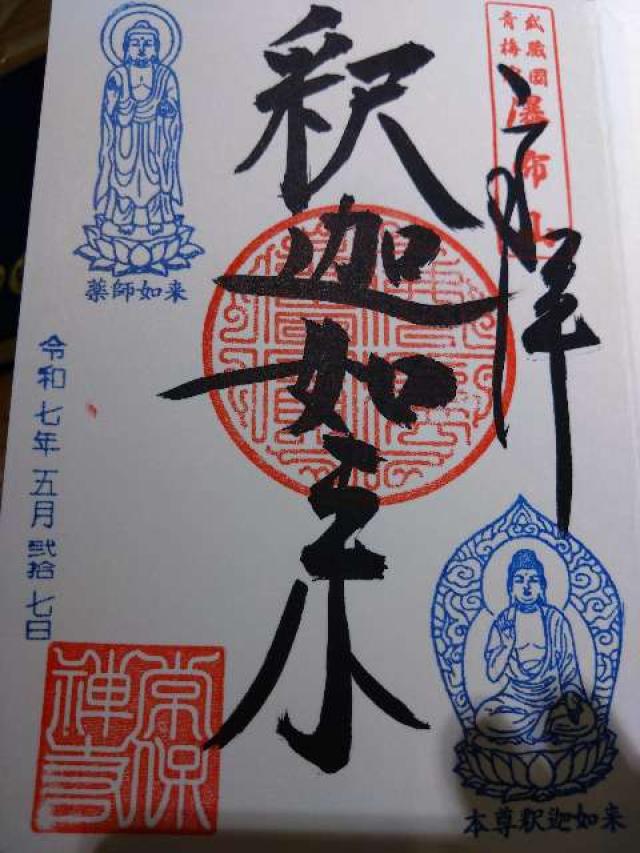 武蔵國
青梅
瀑布山
奉拝
釈迦如来
薬師如来
令和七年五月弐拾七日
本尊釈迦如来
常保
禅寺